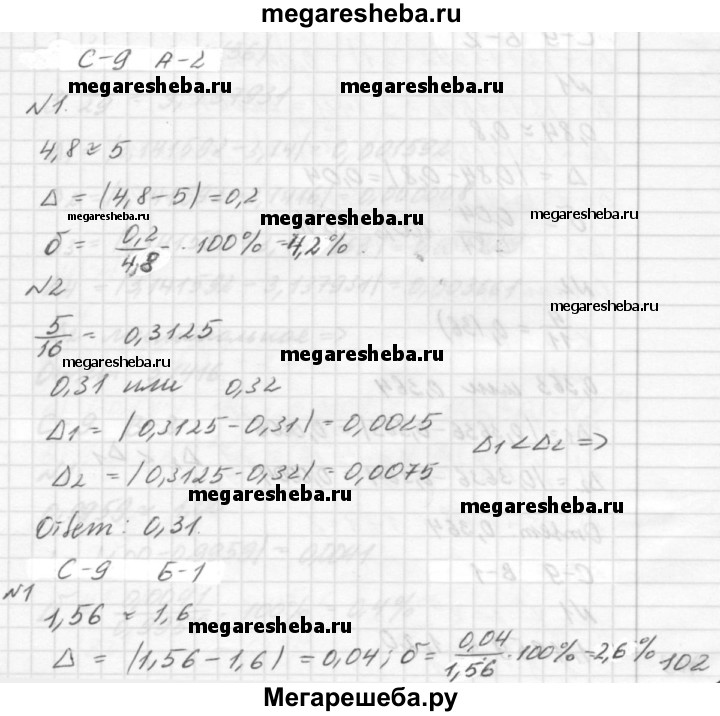 megaresheba.ru
С-9 А-2
megaresheba.ru megaresheba.ru
№1.
4,8 ≈ 5
Δ = |4,8-5| = 0,2
megaresheba.ru megaresheba.ru megaresheba.ru
δ = 0,2/4,8 · 100% = 4,2%.
№2
megaresheba.ru
5/16 = 0,3125
megaresheba.ru megaresheba.ru
0,31 или 0,32
Δ1 = |0,3125-0,31| = 0,0025
Δ1 < Δ2 =>
Δ2 = |0,3125-0,32| = 0,0075
megaresheba.ru megaresheba.ru
Ответ: 0,31.
С-9 Б-1
№1
1,56 ≈ 1,6
megaresheba.ru
Δ = |1,56-1,6| = 0,04; δ = 0,04/1,56 · 100% = 2,6%
102
Мегарешеба.ру